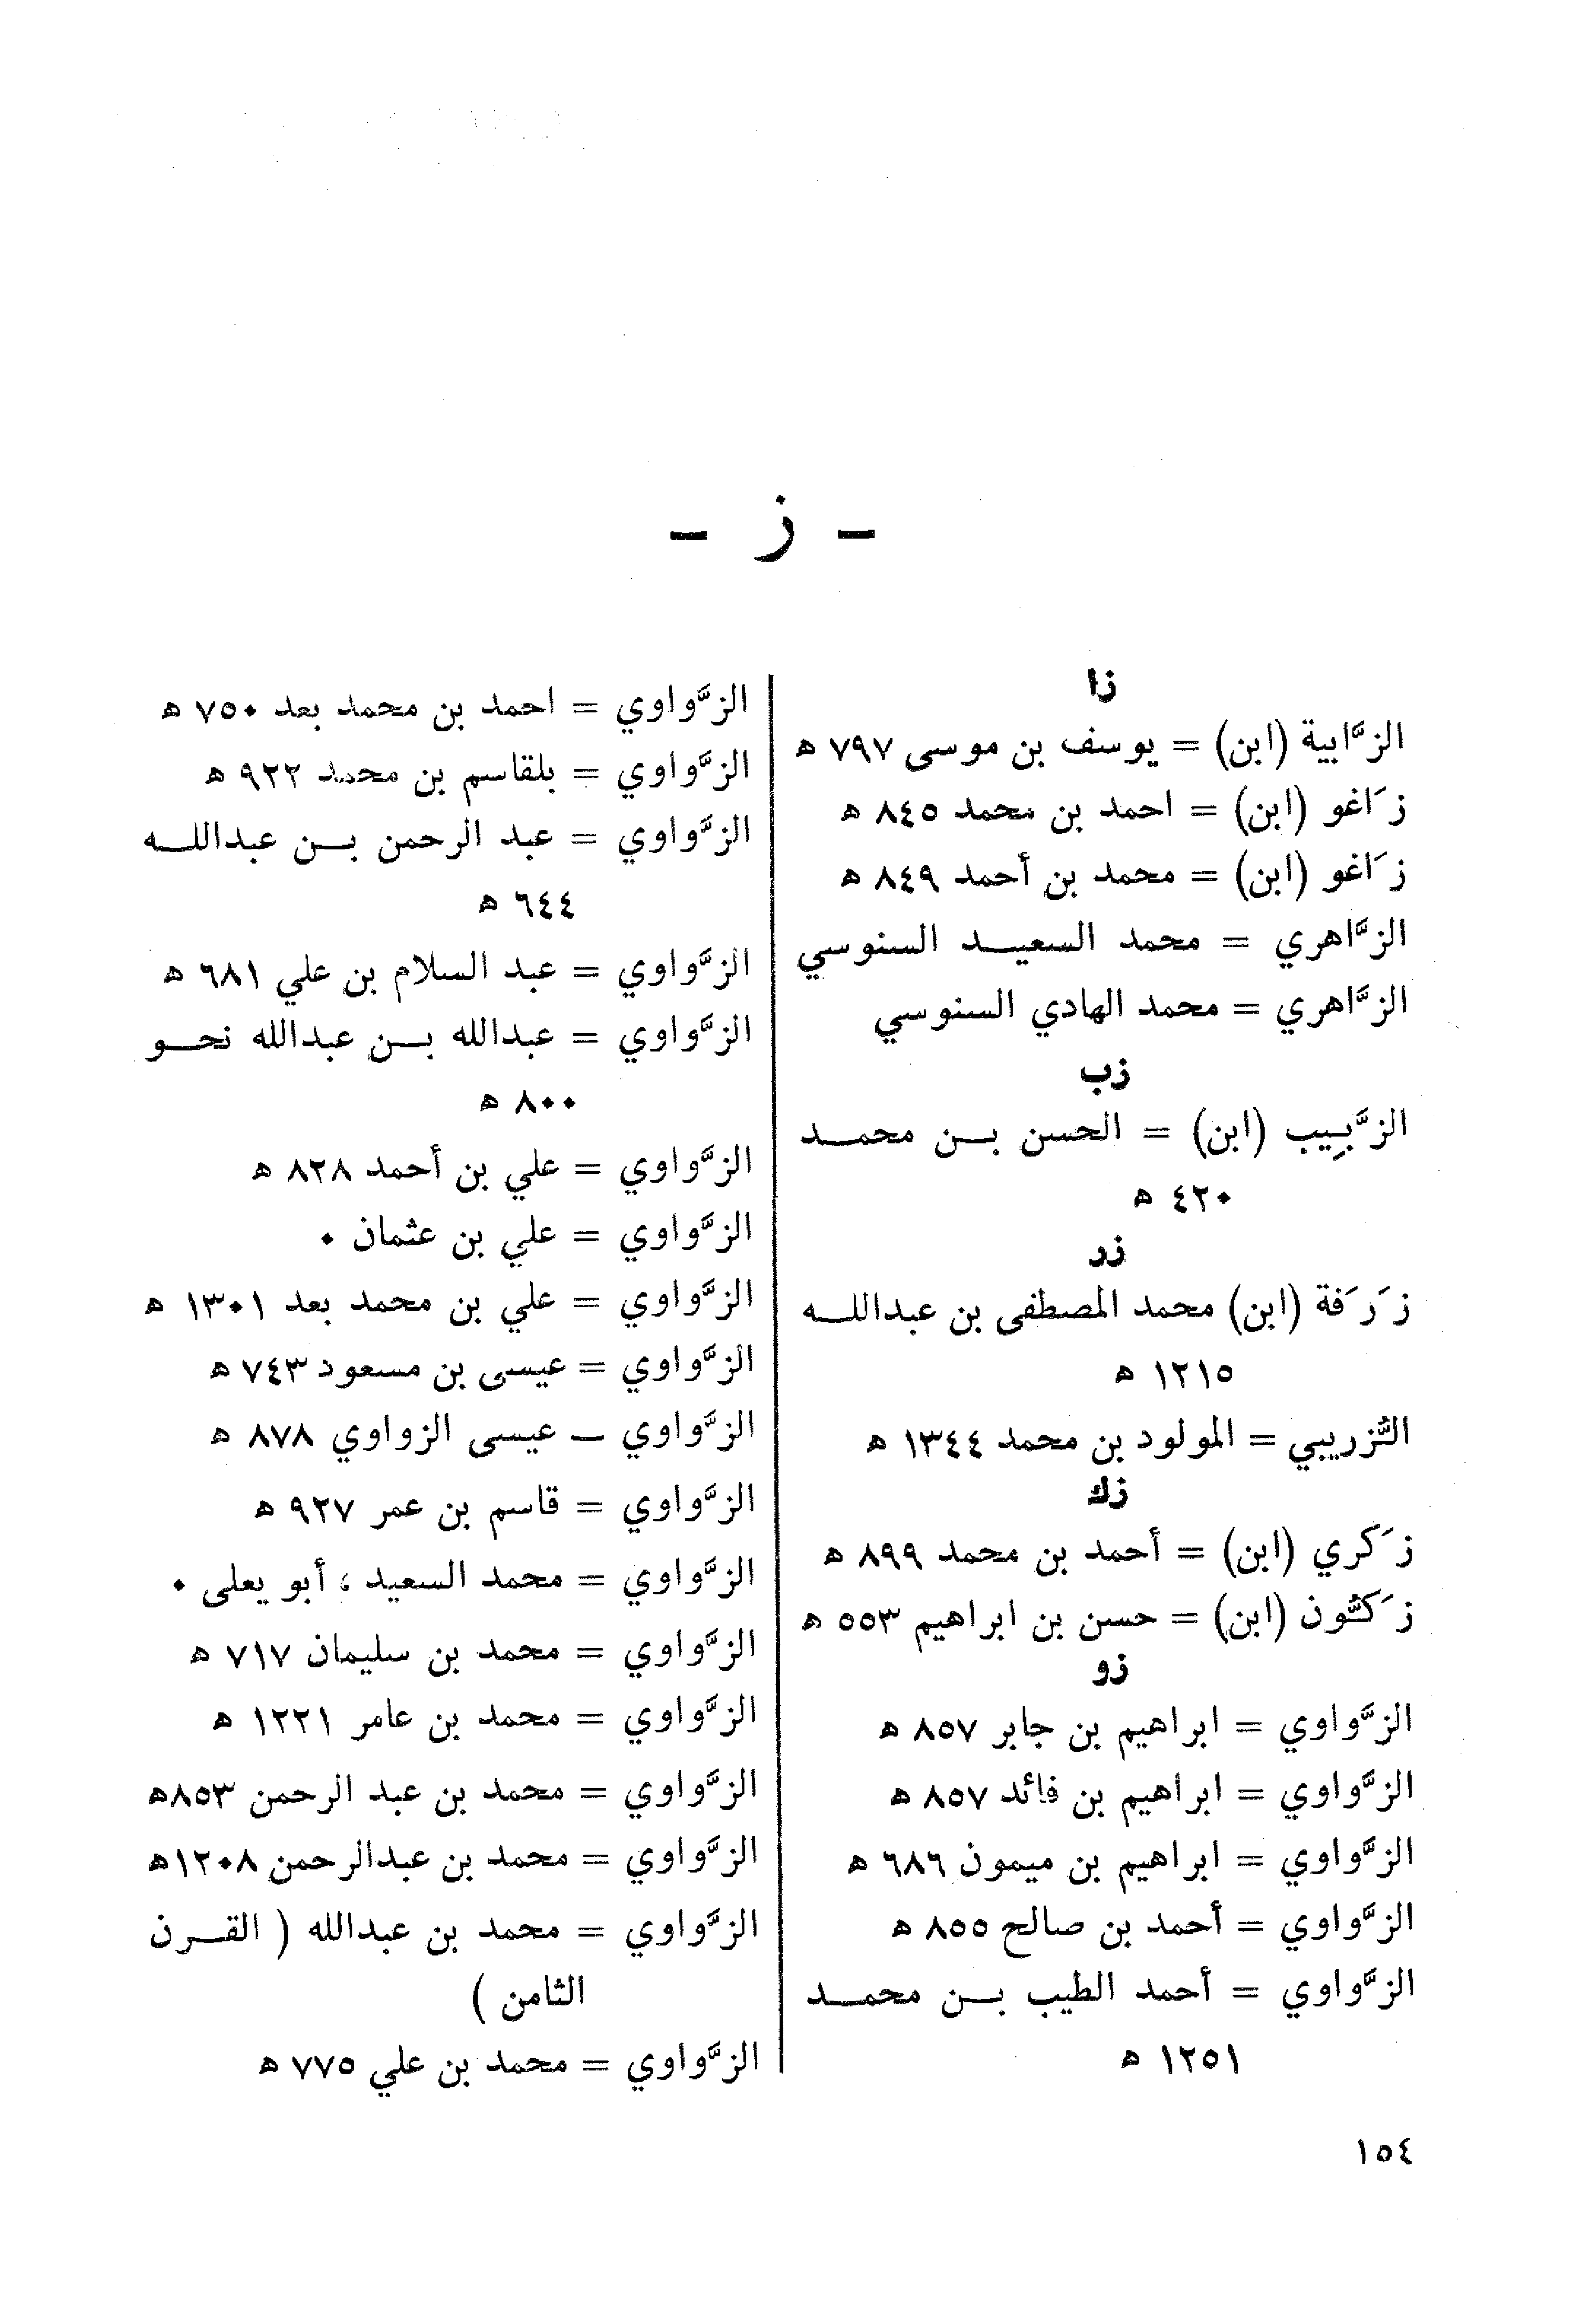 - ز -
زا
الزَّابية (ابن) = يوسف بن موسى ٧٩٧ ه
زَاغو (ابن) = احمد بن محمد ٨٤٥ ه
زَاغو (ابن) = محمد بن أحمد ٨٤٩ ه
الزَّاهري = محمد السعيد السنوسي
الزَّاهري = محمد الهادي السنوسي
زب
الزَّبِيب (ابن) = الحسن بن محمد
٤٢٠ ه
زر
زَرَفة (ابن) محمد المصطفى بن عبدالله
١٢١٥ ه
الزُّريبي = المولود بن محمد ١٣٤٤ ه
زك
زَكري (ابن) = أحمد بن محمد ٨٩٩ ه
زَكنُّون (ابن) = حسن بن ابراهيم ٥٥٣ ه
زو
الزَّواوي = ابراهيم بن جابر ٨٥٧ ه
الزَّواوي = ابراهيم بن فائد ٨٥٧ ه
الزَّواوي = ابراهيم بن ميمون ٦٨٦ ه
الزَّواوي = أحمد بن صالح ٨٥٥ ه
الزَّواوي = أحمد الطيب بن محمد
١٢٥١ ه
الزَّواوي = احمد بن محمد بعد ٧٥٠ ه
الزَّواوي = بلقاسم بن محمد ٩٢٢ ه
الزَّواوي = عبد الرحمن بن عبدالله
٦٤٤ ه
الزَّواوي = عبد السلام بن علي ٦٨١ ه
الزَّواوي = عبدالله بن عبدالله نحو
٨٠٠ ه
الزَّواوي = علي بن أحمد ٨٢٨ ه
الزَّواوي = علي بن عثمان .
الزَّواوي = علي بن محمد بعد ١٣٠١ ه
الزَّواوي = عيسى بن مسعود ٧٤٣ ه
الزَّواوي — عيسى الزواوي ٨٧٨ ه
الزَّواوي = قاسم بن عمر ٩٢٧ ه
الزَّواوي = محمد السعيد ، أبو يعلى .
الزَّواوي = محمد بن سليمان ٧١٧ ه
الزَّواوي = محمد بن عامر ١٢٢١ ه
الزَّواوي = محمد بن عبد الرحمن ٨٥٣ه
الزَّواوي = محمد بن عبدالرحمن ١٢٠٨ه
الزَّواوي = محمد بن عبدالله ( القرن
الثامن )
الزَّواوي = محمد بن علي ٧٧٥ ه
١٥٤